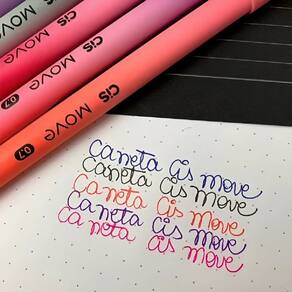 cis MOVE
cis MOVE 0.7
cis MOVE 0.7
caneta cis move
caneta cis move
caneta cis move
caneta cis move
caneta cis move